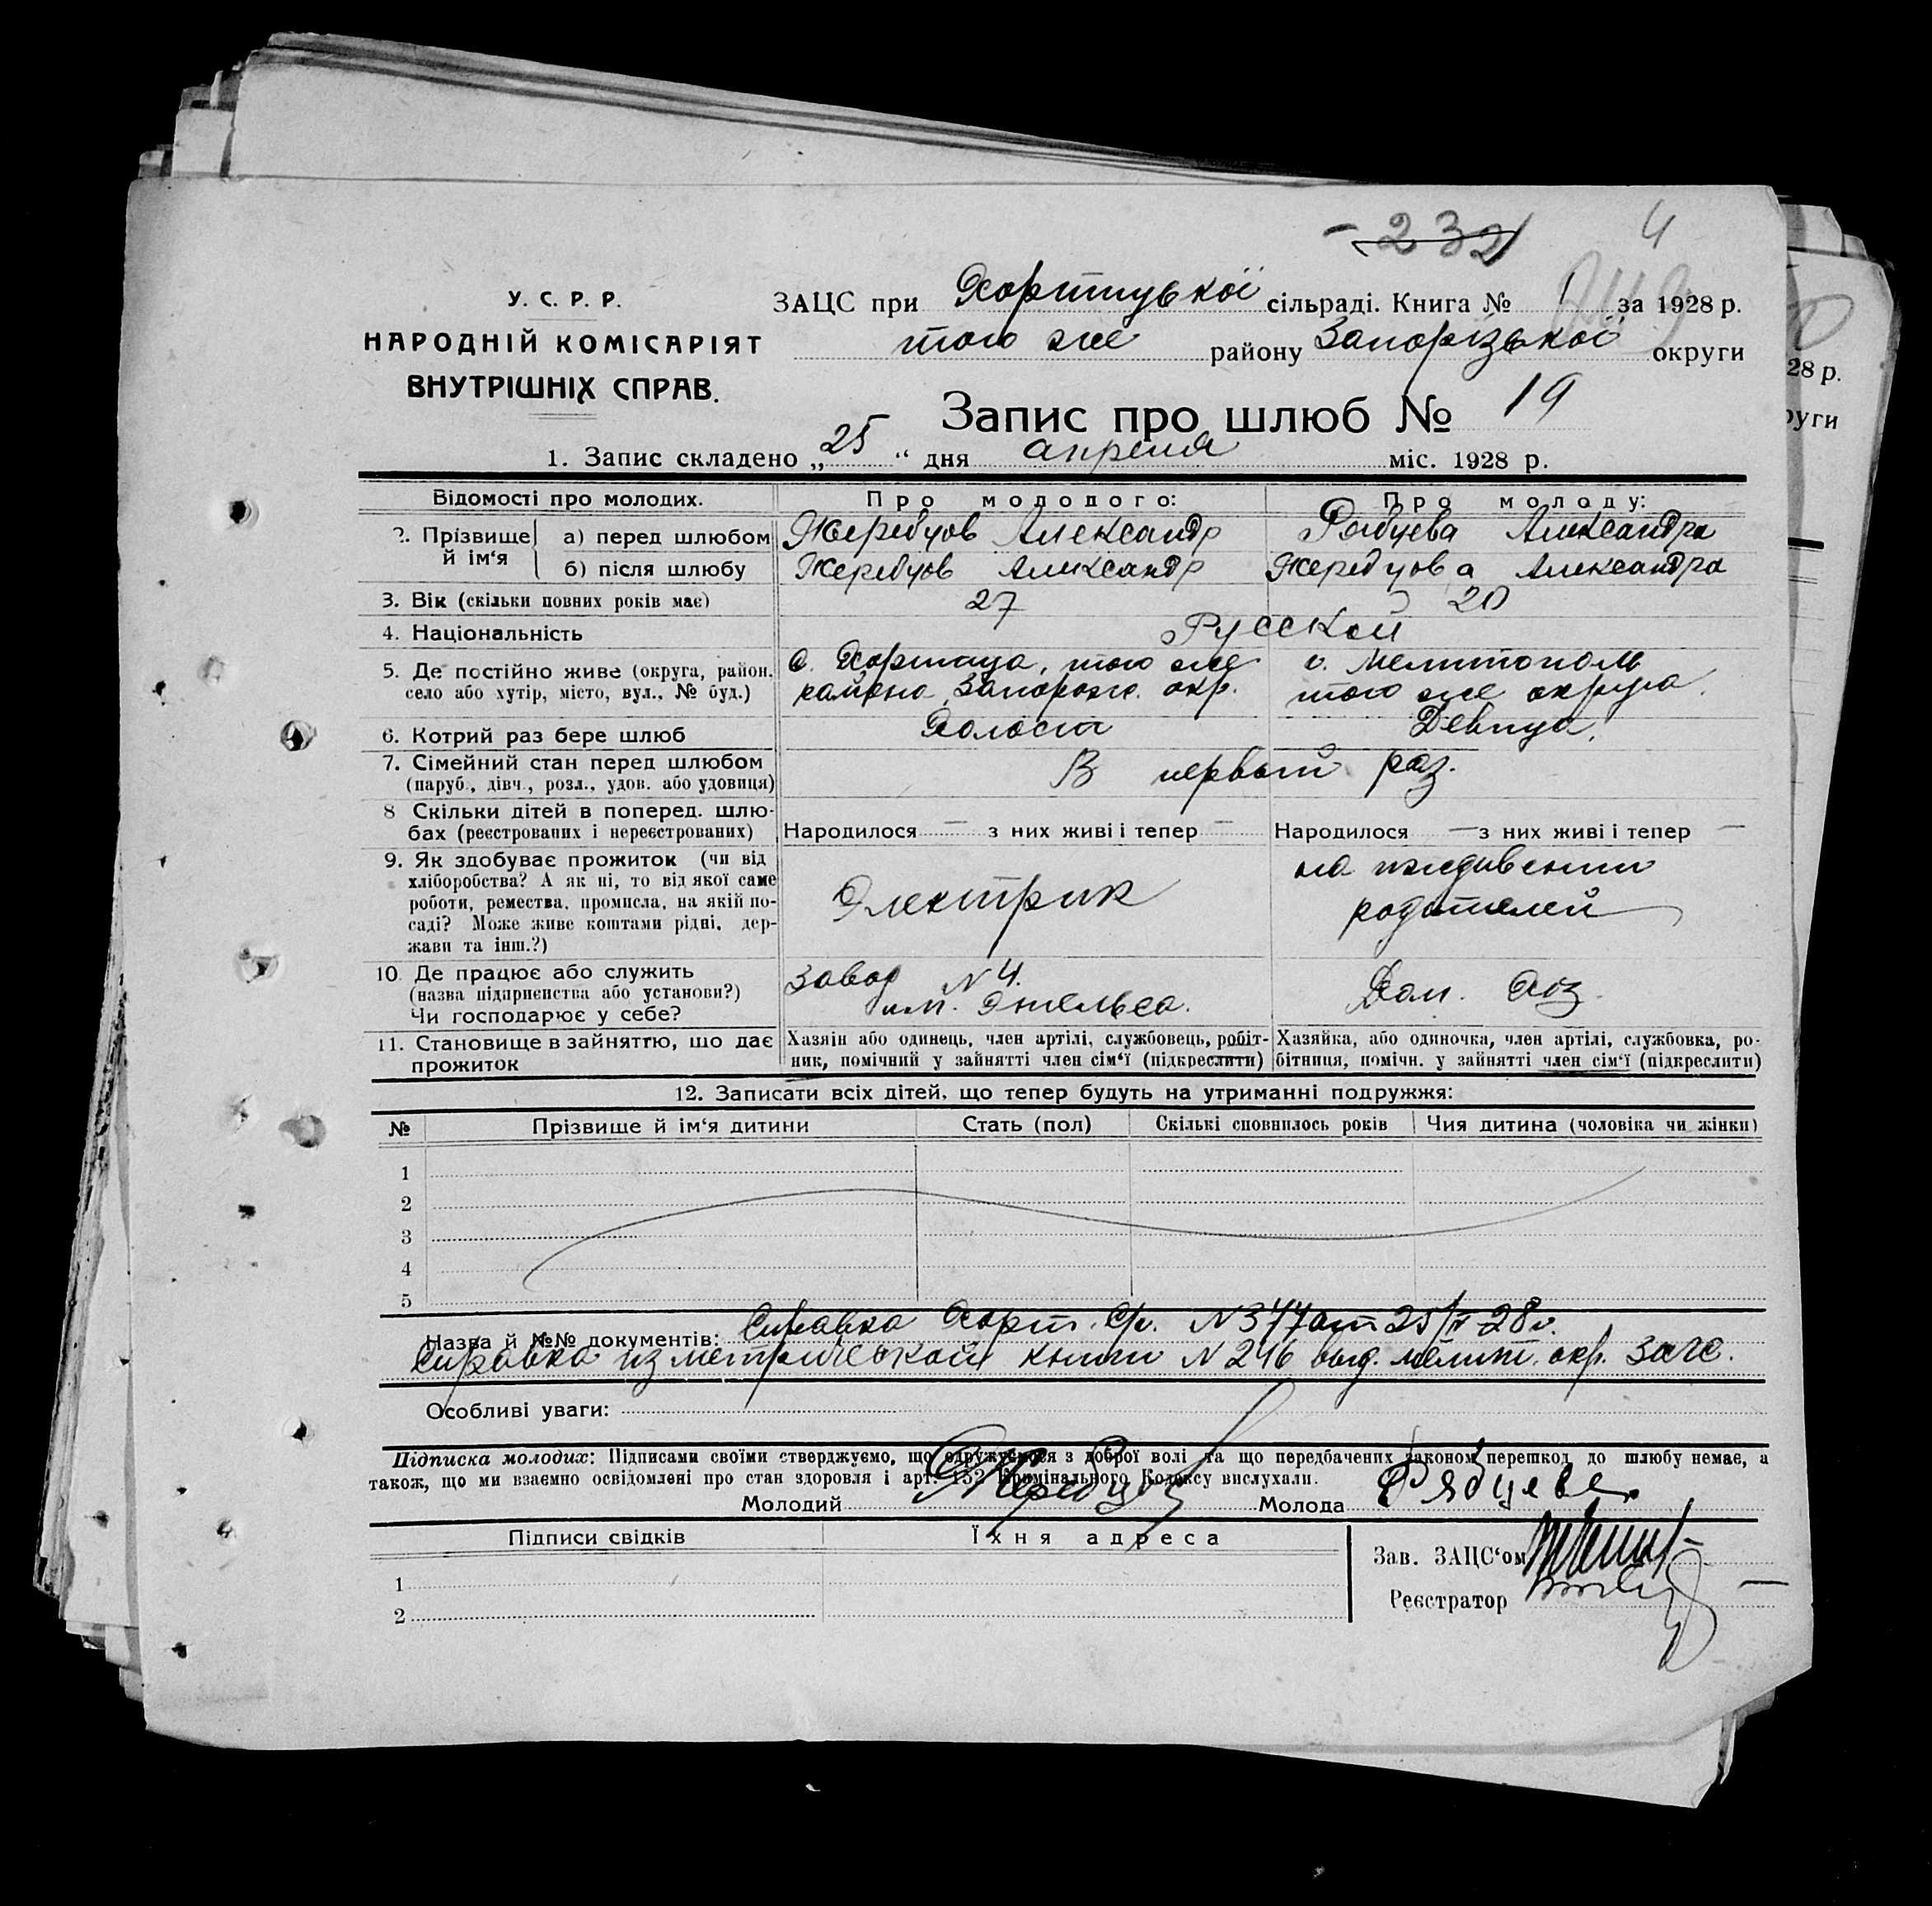 232 4
У. С. Р. Р.
НАРОДНІЙ КОМІСАРІЯТ
ВНУТРІШНІХ СПРАВ.
ЗАЦС при Хортицької сільраді. Книга № 1 за 1928 р.
того же району Запорізької округи
Запис про шлюб № 19
1. Запис складено „25“ дня апреля міс. 1928 р.
28 р.
руги
Відомості про молодих. Про молодого: Про молоду:
2. Прізвище й ім‘я а) перед шлюбом Жеребцов Александр Рябцева Александра
б) після шлюбу Жеребцов Александр Жеребцова Александра
3. Вік (скільки повних років має) 27 20
4. Національність Русской
5. Де постійно живе (округа, район, с. Хортица, того же г. Мелитополь
село або хутір, місто, вул., № буд.) района, Запорож. окр. того же округа.
6. Котрий раз бере шлюб Холост Девица.
7. Сімейний стан перед шлюбом В первый раз.
(паруб., дівч., розл., удов. або удовиця)
8 Скільки дітей в поперед. шлю-
бах (реєстрованих і нереєстрованих) Народилося — з них живі і тепер — Народилося — з них живі і тепер —
9. Як здобуває прожиток (чи від на иждивении
хліборобства? А як ні, то від якої саме Электрик
роботи, ремества, промисла, на якій по- родителей
саді? Може живе коштами рідні, дер-
жави та інш.?)
10. Де працює або служить Завод N 4. Дом. Хоз.
(назва підприємства або установи?) им. Энгельса.
Чи господарює у себе?
11. Становище в зайняттю, що дає Хазяїн або одинець, член артілі, службовець, робіт- Хазяйка, або одиночка, член артілі, службовка, ро-
прожиток ник, помічний у зайнятті член сім‘ї (підкреслити) бітниця, помічн. у зайнятті член сім‘ї (підкреслити)
12. Записати всіх дітей, що тепер будуть на утриманні подружжя:
№ Прізвище й ім‘я дитини Стать (пол) Скількі сповнилось років Чия дитина (чоловіка чи жінки)
1
2
3
4
5
Назва й №№ документів: Справка Хорт. С/р. N 377 от 25/IV 28 г.
Справка из метрической книги N 246 выд. мелит. окр. загс.
Особливі уваги:
Підписка молодих: Підписами своїми стверджуємо, що одружуємося з доброї волі та що передбачених законом перешкод до шлюбу немає, а
також, що ми взаємно освідомлені про стан здоровля і арт. 152 Кримінального Кодексу вислухали.
Молодий Жеребцов Молода Рябцева
Підписи свідків Їхня адреса
Зав. ЗАЦС‘ом
1
Реєстратор
2